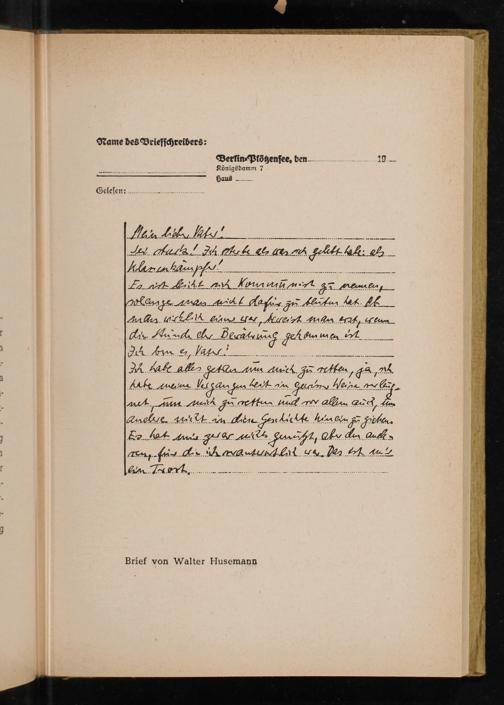 Name des Briefschreibers:
Berlin-Plötzensee, den 19
Königsdamm 7
Haus
Gelesen:
Mein lieber Vater!
Sei stark! Ich sterbe als was ich gelebt habe: als
Klassenkämpfer!
Es ist leicht sich Kommunist zu nennen,
solange man nicht dafür zu bluten hat. Ob
man wirklich einer war, beweist man erst, wenn
die Stunde der Bewährung gekommen ist.
Ich bin es, Vater!
Ich habe alles getan um mich zu retten, ja, ich
habe meine Vergangenheit in gewisser Weise verleug-
net, um mich zu retten und vor allem auch, um
andere nicht in diese Geschichte hineinzuziehen.
Es hat mir zwar nichts genützt, aber den ande-
ren, für die ich verantwortlich war. Das ist mir
ein Trost.
Brief von Walter Husemann